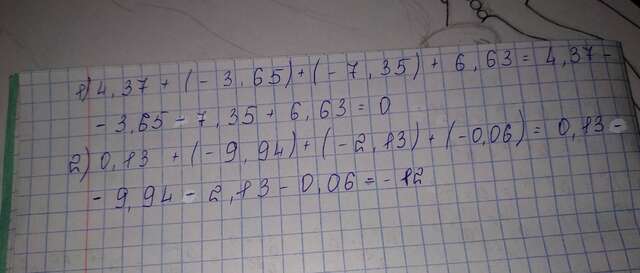 1) 4,37 + (- 3,65) + (- 7,35) + 6,63 = 4,37 -
- 3,65 - 7,35 + 6,63 = 0
2) 0,13 + (- 9,94) + (- 2,13) + (-0,06) = 0,13 -
- 9,94 - 2,13 - 0,06 = - 12